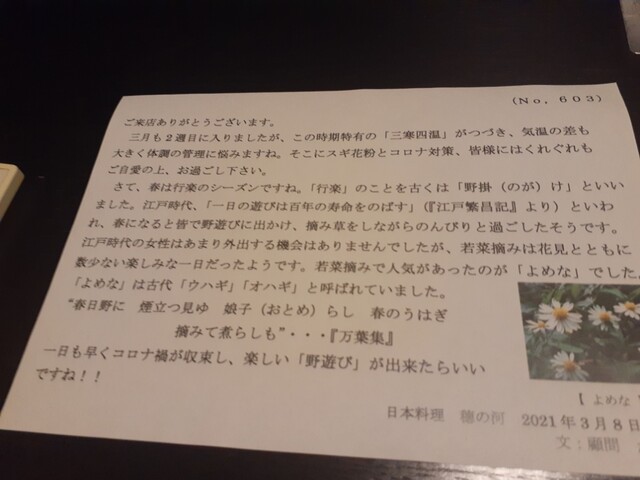 (No, 603)
ご来店ありがとうございます。
三月も2週目に入りましたが、この時期特有の「三寒四温」がつづき、気温の差も
大きく体調の管理に悩みますね。そこにスギ花粉とコロナ対策、皆様にはくれぐれも
ご自愛の上、お過ごし下さい。
さて、春は行楽のシーズンですね。「行楽」のことを古くは「野掛(のが)け」といい
ました。江戸時代、「一日の遊びは百年の寿命をのばす」(『江戸繁昌記』より)といわ
れ、春になると皆で野遊びに出かけ、摘み草をしながらのんびりと過ごしたそうです。
江戸時代の女性はあまり外出する機会はありませんでしたが、若菜摘みは花見とともに
数少ない楽しみな一日だったようです。若菜摘みで人気があったのが「よめな」でした。
「よめな」は古代「ウハギ」「オハギ」と呼ばれていました。
“春日野に 煙立つ見ゆ 娘子(おとめ)らし 春のうはぎ
摘みて煮らしも”・・・『万葉集』
一日も早くコロナ禍が収束し、楽しい「野遊び」が出来たらいい
ですね!!
【 よめな
日本料理 穂の河 2021年3月8日
文:顧問